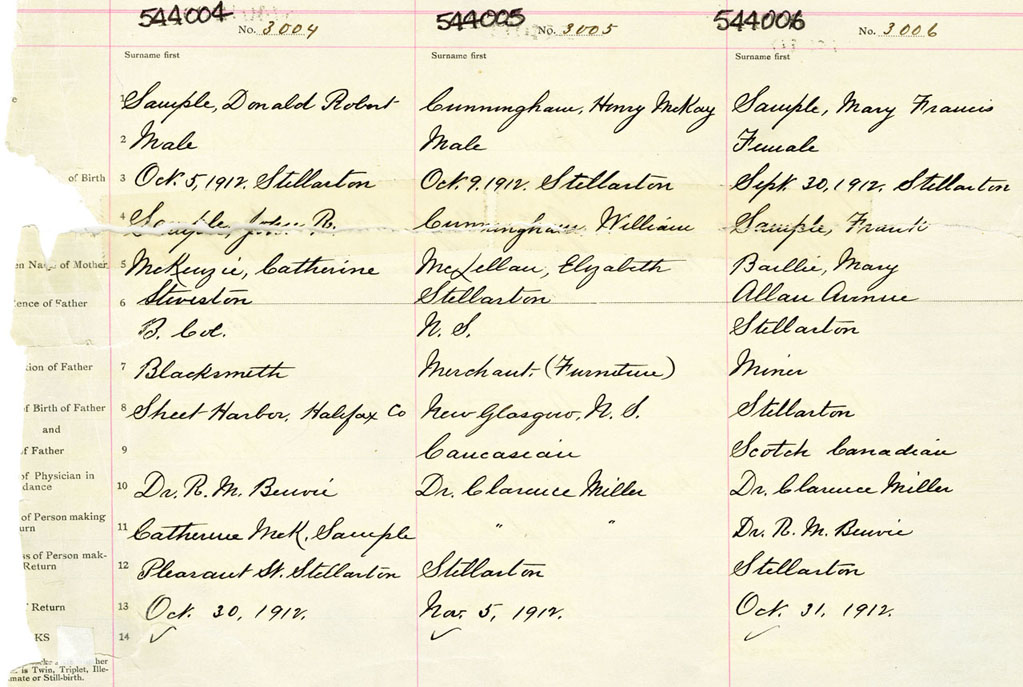 544004 544005 544006
No. 3004 No. 3005 No. 3006
Surname first Surname first Surname first
e 1 Sample, Donald Robert Cunningham, Henry McKay Sample, Mary Francis
2 Male Male Female
of Birth 3 Oct. 5, 1912. Stellarton Oct. 9. 1912. Stellarton Sept. 30, 1912. Stellarton
4 Sample, John R. Cunningham, William Sample, Frank
en Name of Mother 5 McKenzie, Catherine McLellan, Elizabeth Baillie, Mary
ence of Father 6 Steveston Stellarton Allan Avenue
B. Col. N. S. Stellarton
tion of Father 7 Blacksmith Merchant. (Furniture) Miner
f Birth of Father 8 Sheet Harbor, Halifax Co New Glasgow, N. S. Stellarton
and
f Father 9 Caucasian Scotch Canadian
of Physician in
dance 10 Dr. R. M. Benvie Dr. Clarence Miller Dr. Clarence Miller
of Person making
urn 11 Catherine McK. Sample " " Dr. R. M. Benvie
s of Person mak-
Return 12 Pleasant St. Stellarton Stellarton Stellarton
Return 13 Oct. 30, 1912. Nov. 5, 1912. Oct. 31, 1912.
KS 14 ✓ ✓ ✓
her
is Twin, Triplet, Ille-
mate or Still-birth.